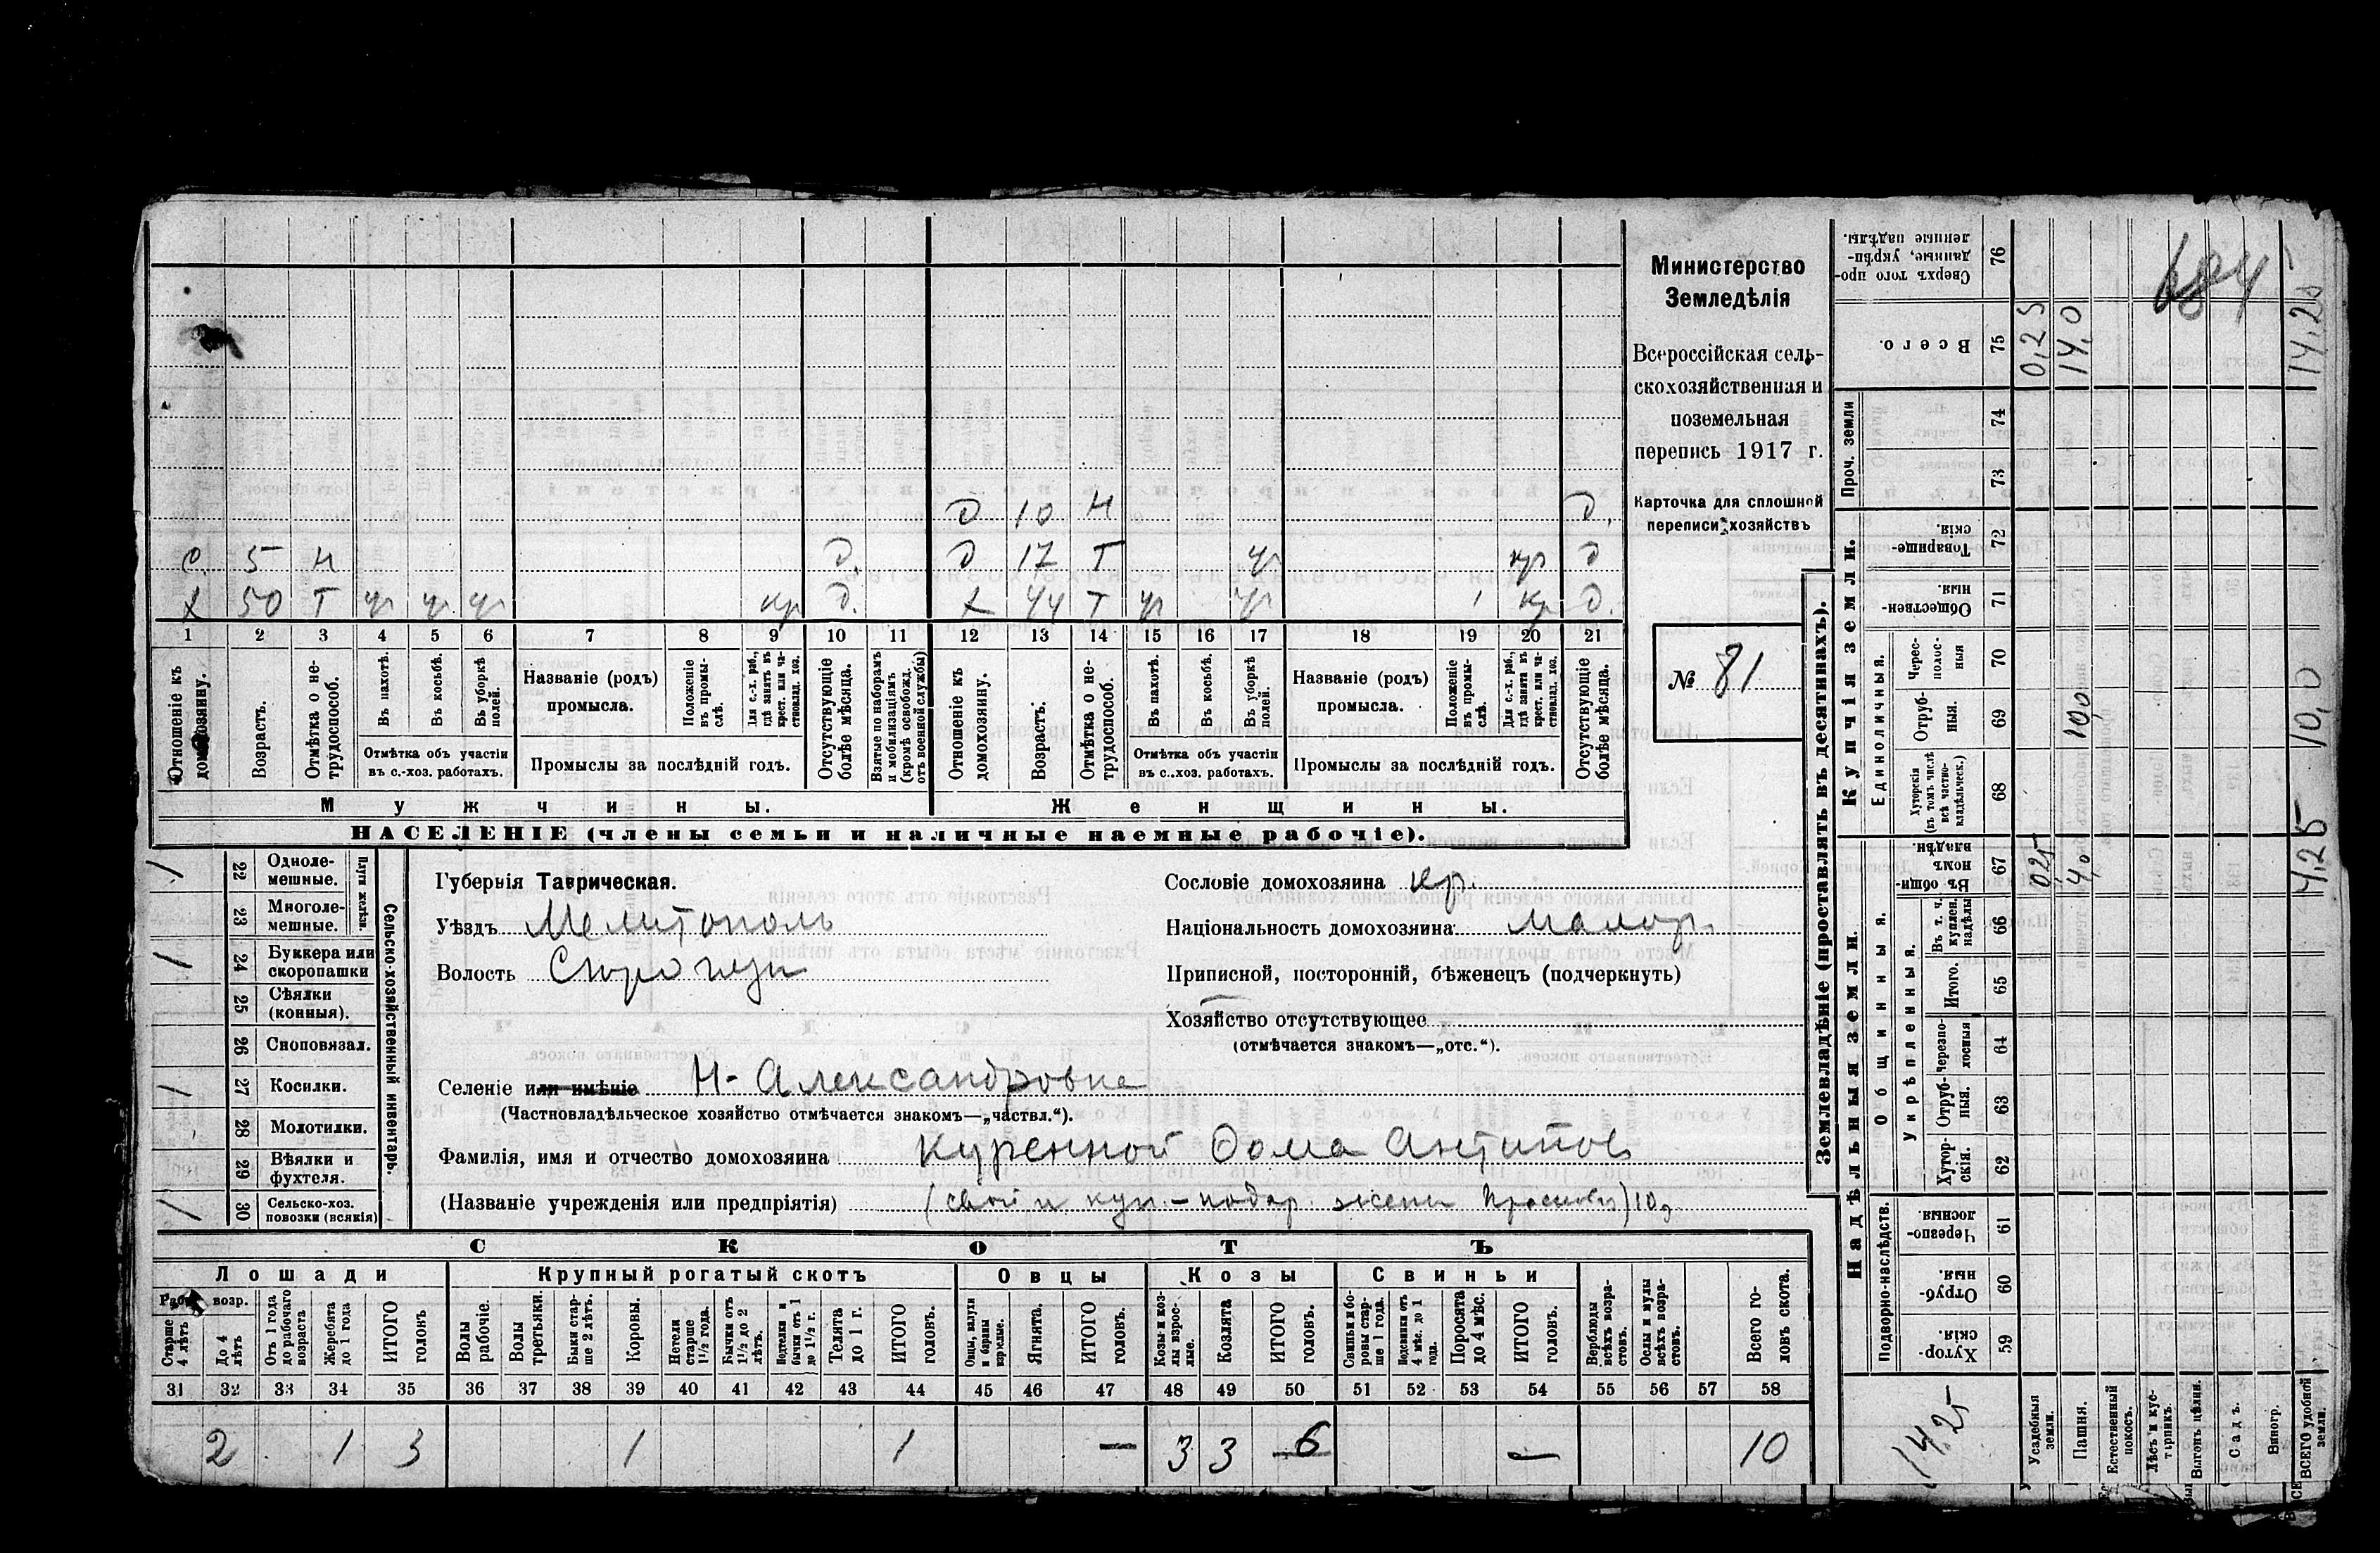 Министерство
Земледѣлія
Всероссійская сель-
скохозяйственная и
поземельная
перепись 1917 г.
Карточка для сплошной
переписи хозяйствъ
№ 81
д 10 н д.
д. 5 н д. д 17 т ур кр д
х 50 т ур ур ур кр д. х 44 т ур ур кр д.
1 2 3 4 5 6 7 8 9 10 11 12 13 14 15 16 17 18 19 20 21
Отношеніе къ домохозяину.
Возрастъ.
Отмѣтка о не-трудоспособ.
Въ пахотѣ.
Въ косьбѣ.
Въ уборкѣ полей.
Отмѣтка объ участіи
въ с.-хоз. работахъ.
Названіе (родъ)
промысла.
Положеніе въ промы-слѣ.
Для с.-х. раб., гдѣ занятъ въ крест. или ча-стновлад. хоз.
Промыслы за послѣдній годъ.
Отсутствующіе болѣе мѣсяца.
Взятые по наборамъ и мобилизаціямъ (кромѣ освобожд. отъ военной службы)
Отношеніе къ домохозяину.
Возрастъ.
Отмѣтка о не-трудоспособ.
Въ пахотѣ.
Въ косьбѣ.
Въ уборкѣ полей.
Отмѣтка объ участіи
въ с..хоз. работахъ.
Названіе (родъ)
промысла.
Положеніе въ промы-слѣ.
Для с.-х. раб., гдѣ занята въ крест. или ча-стновлад. хоз.
Промыслы за послѣдній годъ.
Отсутствующіе болѣе мѣсяца.
Мужчины.
Женщины.
НАСЕЛЕНІЕ (члены семьи и наличные наемные рабочіе).
Сельско-хозяйственный инвентарь.
Плуги желѣзн.
1 22 Одноле-мешные.
23 Многоле-мешные.
1 24 Буккера или скоропашки
25 Сѣялки (конныя).
26 Сноповязал.
1 27 Косилки.
28 Молотилки.
29 Вѣялки и фухтеля.
1 30 Сельско-хоз. повозки (всякія)
Губернія Таврическая.
Уѣздъ Мелитополь
Волость
Сословіе домохозяина кр.
Національность домохозяина малор.
Приписной, посторонній, бѣженецъ (подчеркнуть)
Хозяйство отсутствующее
(отмѣчается знакомъ—„отс.“).
Селеніе или имѣніе Н-Александровка
(Частновладѣльческое хозяйство отмѣчается знакомъ—„частвл.“).
Фамилія, имя и отчество домохозяина Куренной Фома Антипов
(Названіе учрежденія или предпріятія) (свой и куп. - подар. жены Просковьи) 10 д
СКОТЪ
Лошади
Крупный рогатый скотъ
Овцы
Козы
Свиньи
Раб. возр.
Старше 4 лѣтъ
До 4 лѣтъ
Отъ 1 года до рабочаго возраста
Жеребята до 1 года
ИТОГО головъ
Волы рабочіе.
Волы третьяки.
Быки стар-ше 2 лѣтъ.
Коровы.
Нетели старше 1½ года.
Бычки отъ 1½ до 2 лѣтъ.
Подтелки и бычки отъ 1 до 1½ г.
Телята до 1 г.
ИТОГО головъ.
Овцы, валухи и бараны взрослые.
Ягнята.
ИТОГО головъ.
Козы и коз-лы взрос-лые.
Козлята
ИТОГО головъ.
Свиньи и бо-ровы стар-ше 1 года.
Подсвинки отъ 4 мѣс. до 1 года.
Поросята до 4 мѣс.
ИТОГО головъ.
Верблюды всѣхъ возра-стовъ.
Ослы и мулы всѣхъ возра-стовъ.
Всего го-ловъ скота.
31 32 33 34 35 36 37 38 39 40 41 42 43 44 45 46 47 48 49 50 51 52 53 54 55 56 57 58
2 1 3 1 1 — 3 3 6 — 10
Землевладѣніе (проставлять въ десятинахъ).
Надѣльныя земли.
Купчія земли.
Проч. земли
Подворно-наслѣдств.
Общинныя.
Укрѣпленныя.
Единоличныя.
Сверхъ того про-данные, укрѣп-ленные надѣлы. 76
Всего. 75
74
73
Товарище-скія. 72
Обществен-ныя. 71
Черес-полос-ныя 70
Отруб-ныя. 69
Хуторскія (въ томъ числѣ всѣ частно-владѣльческ.) 68
Въ общи-номъ владѣн. 67
Въ т. ч. куплен. надѣлы 66
Итого. 65
Черезпо-лосныя 64
Отруб-ныя. 63
Хутор-скія. 62
Черезпо-лосныя. 61
Отруб-ныя. 60
Хутор-скія. 59
Усадебныя земли. 0,25 0,25
Пашня. 4,0 10,0 14,0
Естественный покосъ.
Лѣсъ и кус-тарникъ.
Выгонъ цѣлин.
Садъ.
Виногр.
ВСЕГО удобной земли. 4,25 10,0 14,25
14,25